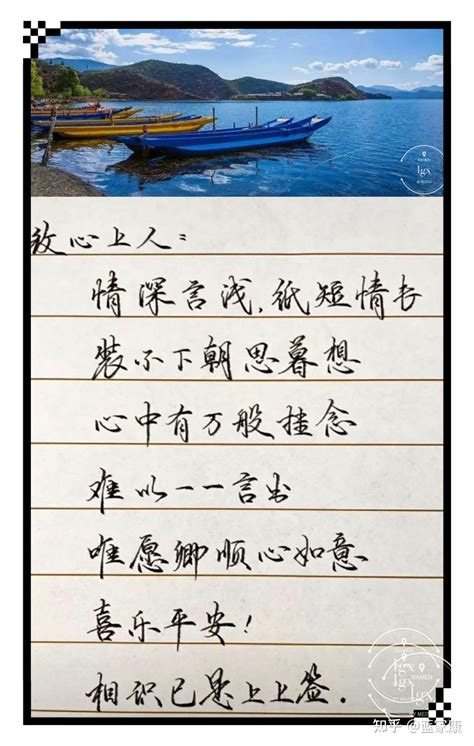 致心上人：
情深言浅，纸短情长
装不下朝思暮想
心中有万般挂念
难以一一言出
唯愿卿顺心如意
喜乐平安！
相识已是上上签．
lgx
知乎 @蓝家康